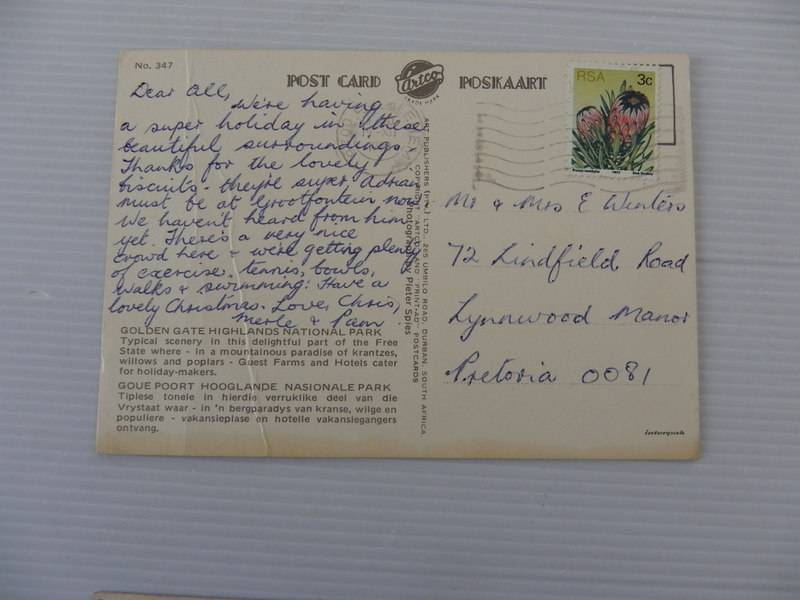 No. 347
POST CARD
Artco
TRADE MARK
POSKAART
RSA 3c
Dear All,
We're having
a super holiday in these
beautiful surroundings.
Thanks for the lovely
biscuits - they're super. Adrian
must be at Grootfontein now.
We haven't heard from him
yet. There's a very nice
crowd here & we're getting plenty
of exercise. tennis, bowls,
walks & swimming. Have a
lovely Christmas. Love, Chris,
Merle & Pam
GOLDEN GATE HIGHLANDS NATIONAL PARK
Typical scenery in this delightful part of the Free
State where - in a mountainous paradise of krantzes,
willows and poplars - Guest Farms and Hotels cater
for holiday-makers.
GOUE POORT HOOGLANDE NASIONALE PARK
Tipiese tonele in hierdie verruklike deel van die
Vrystaat waar - in 'n bergparadys van kranse, wilge en
populiere - vakansieplase en hotelle vakansiegangers
ontvang.
ART PUBLISHERS (PTY.) LTD., 265 UMBILO ROAD, DURBAN, SOUTH AFRICA.
COPYRIGHT "ARTCO" AND "PRINT-AD" POSTCARDS
Photography: Pieter Spies
Mr & Mrs E Winters
72 Lindfield Road
Lynnwood Manor
Pretoria 0081